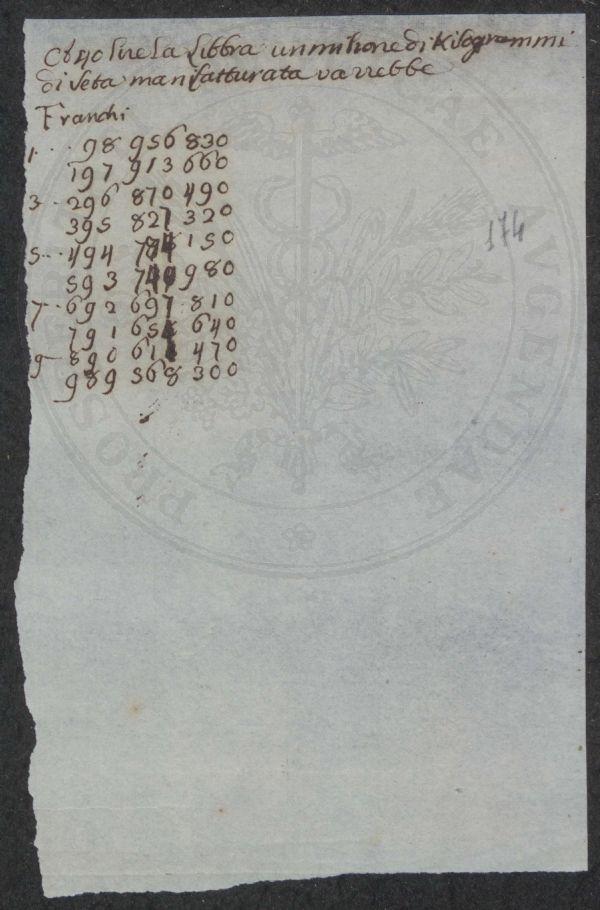 40 lire la Libbra un milione di Kilogrammi
di seta manifatturata varrebbe
Franchi
1.. 98 956 830
197 913 660
3.. 296 870 490
395 827 320
5.. 494 784 150
593 740 980
7.. 692 697 810
791 654 640
9.. 890 611 470
989 568 300
174
PROS
AVGENDAE